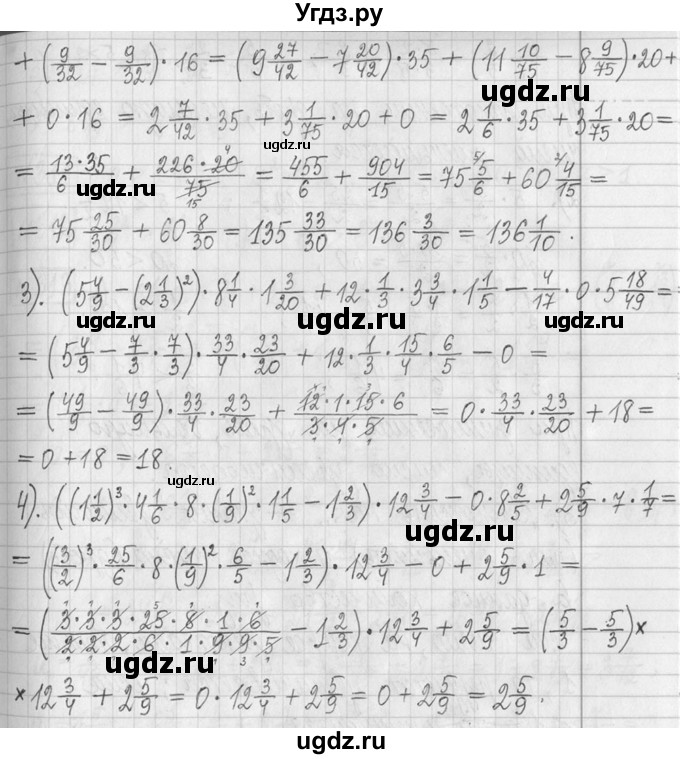 Угдз.ру
+ (9/32 − 9/32) · 16 = (9 27/42 − 7 20/42) · 35 + (11 10/75 − 8 9/75) · 20 +
ugdz.ru
+ 0 · 16 = 2 7/42 · 35 + 3 1/75 · 20 + 0 = 2 1/6 · 35 + 3 1/75 · 20 =
ugdz.ru ugdz.ru
= 13·35/6 + 226·20/75 = 455/6 + 904/15 = 75 5/6 + 60 4/15 =
ugdz.ru ugdz.ru
= 75 25/30 + 60 8/30 = 135 33/30 = 136 3/30 = 136 1/10.
ugdz.ru
3). (5 4/9 − (2 1/3)²) · 8 1/4 · 1 3/20 + 12 · 1/3 · 3 3/4 · 1 1/5 − 4/17 · 0 · 5 18/49 =
ugdz.ru ugdz.ru ugdz.ru
= (5 4/9 − 7/3 · 7/3) · 33/4 · 23/20 + 12 · 1/3 · 15/4 · 6/5 − 0 =
= (49/9 − 49/9) · 33/4 · 23/20 + 12·1·15·6/3·4·5 = 0 · 33/4 · 23/20 + 18 =
ugdz.ru ugdz.ru
= 0 + 18 = 18.
ugdz.ru
4). ((1 1/2)³ · 4 1/6 · 8 · (1/9)² · 1 1/5 − 1 2/3) · 12 3/4 − 0 · 8 2/5 + 2 5/9 · 7 · 1/7 =
ugdz.ru ugdz.ru
= ((3/2)³ · 25/6 · 8 · (1/9)² · 6/5 − 1 2/3) · 12 3/4 − 0 + 2 5/9 · 1 =
= (3·3·3·25·8·1·6/2·2·2·6·1·9·9·5 − 1 2/3) · 12 3/4 + 2 5/9 = (5/3 − 5/3) ×
ugdz.ru ugdz.ru
× 12 3/4 + 2 5/9 = 0 · 12 3/4 + 2 5/9 = 0 + 2 5/9 = 2 5/9.
ugdz.ru ugdz.ru